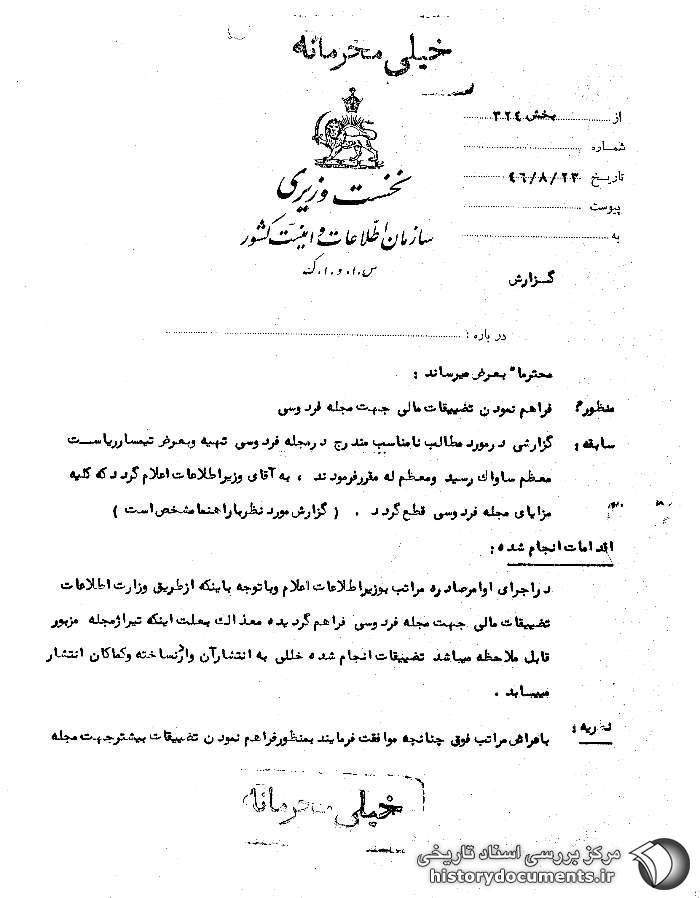 خیلی محرمانه
از بخش ۳۲٤
شماره
تاریخ ٤٦/۸/۲۳
پیوست
به
نخست وزیری
سازمان اطلاعات و امنیت کشور
س.ا.و.ا.ک
گزارش
در باره :
محترما" بعرض میرساند :
منظور: فراهم نمودن تضییقات مالی جهت مجله فردوسی
سابقه : گزارشی درمورد مطالب نامناسب مندرج درمجله فردوسی تهیه وبعرض تیمسارریاست
معظم ساواك رسید ومعظم له مقررفرمودند ، به آقای وزیراطلاعات اعلام گردد که کلیه
مزایای مجله فردوسی قطع گردد . ( گزارش مورد نظربا راهنما مشخص است )
اقدامات انجام شده :
دراجرای اوامرصادره مراتب بوزیراطلاعات اعلام وباتوجه باینکه ازطریق وزارت اطلاعات
تضییقات مالی جهت مجله فردوسی فراهم گردیده معذالك بعلت اینکه تیراژمجله مزبور
قابل ملاحظه میباشد تضییقات انجام شده خللی به انتشارآن واردنساخته وکماکان انتشار
مییابد .
نظریه : باعرض مراتب فوق چنانچه موافقت فرمایند بمنظورفراهم نمودن تضییقات بیشترجهت مجله
خیلی محرمانه
مرکز بررسی اسناد تاریخی
historydocuments.ir